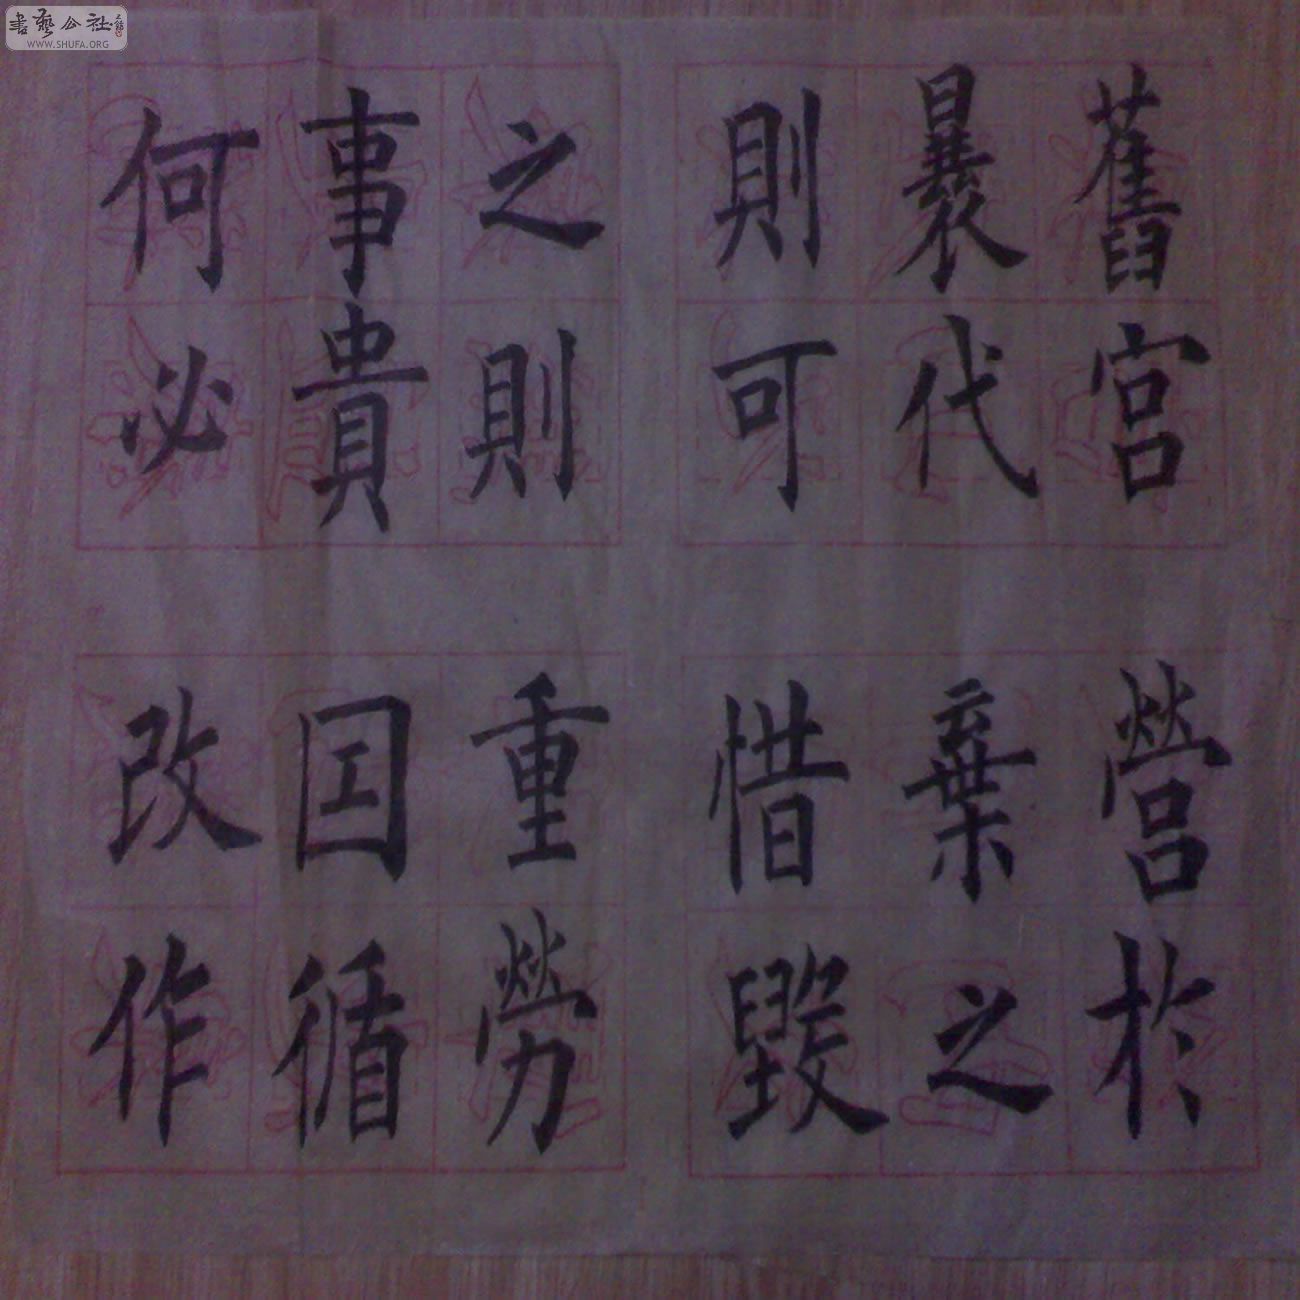 舊宮營於
曩代棄之
則可惜毀
之則重勞
事貴因循
何必改作
書藝公社
WWW.SHUFA.ORG